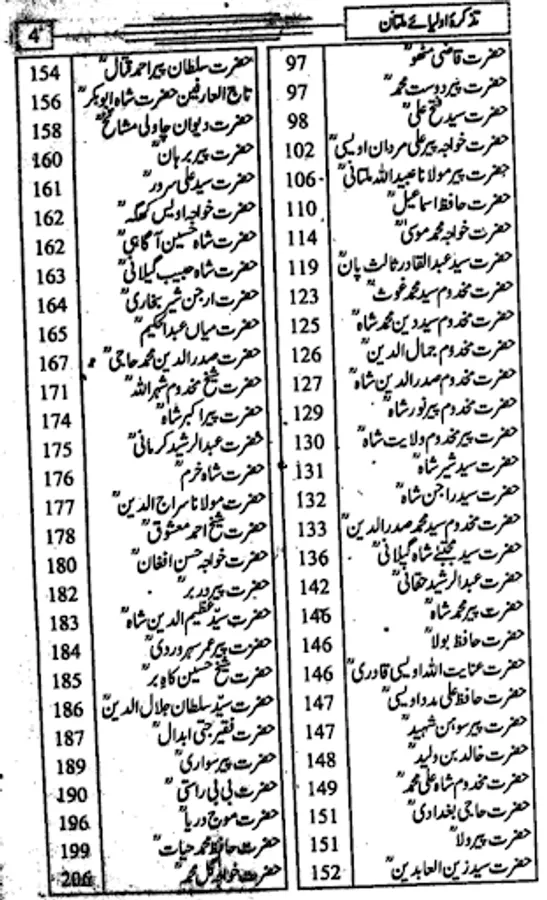 تذکرۂ اولیائے ملتان
4
حضرت قاضی منھوؒ 97
حضرت پیر دوست محمدؒ 97
حضرت سید فتح علیؒ 98
حضرت خواجہ پیر علی مردان اویسیؒ 102
حضرت پیر مولانا عبید اللہ ملتانیؒ 106
حضرت حافظ اسماعیلؒ 110
حضرت خواجہ محمد موسیٰؒ 114
حضرت سید عبدالقادر ثالث پانؒ 119
حضرت مخدوم سید محمد غوثؒ 123
حضرت مخدوم سید دین محمد شاہؒ 125
حضرت مخدوم جمال الدینؒ 126
حضرت مخدوم صدر الدین شاہؒ 127
حضرت مخدوم پیر نور شاہؒ 129
حضرت پیر مخدوم ولایت شاہؒ 130
حضرت سید شیر شاہؒ 131
حضرت سید راجن شاہؒ 132
حضرت مخدوم سید محمد صدر الدینؒ 133
حضرت سید مجتبےٰ شاہ گیلانیؒ 136
حضرت عبدالرشید حقانیؒ 142
حضرت پیر محمد شاہؒ 146
حضرت حافظ بولاؒ 146
حضرت عنایت اللہ اویسی قادریؒ 146
حضرت حافظ علی مدد اویسیؒ 147
حضرت پیر سوہن شہیدؒ 147
حضرت خالد بن ولیدؒ 148
حضرت مخدوم شاہ علی محمدؒ 149
حضرت حاجی بغدادیؒ 151
حضرت پیر دلاؒ 151
حضرت سید زین العابدینؒ 152
حضرت سلطان پیر احمد قتالؒ 154
تاج العارفین حضرت شاہ ابوبکرؒ 156
حضرت دیوان چاولی مشائخؒ 158
حضرت پیر برہانؒ 160
حضرت سید علی سرورؒ 161
حضرت خواجہ اویس کھگہؒ 162
حضرت شاہ حسین آگاہیؒ 162
حضرت شاہ حبیب گیلانیؒ 163
حضرت ارجن شیر بخاریؒ 164
حضرت میاں عبدالحکیمؒ 165
حضرت صدر الدین محمد حاجیؒ 167
حضرت شیخ مخدوم شہر اللہؒ 171
حضرت پیر اکبر شاہؒ 174
حضرت عبدالرشید کرمانیؒ 175
حضرت شاہ خرمؒ 176
حضرت مولانا سراج الدینؒ 177
حضرت شیخ احمد معشوقؒ 178
حضرت خواجہ حسن افغانؒ 180
حضرت پیر دربرؒ 182
حضرت سیّد عظیم الدین شاہؒ 183
حضرت پیر عمر سہروردیؒ 184
حضرت شیخ حسین کاہبرؒ 185
حضرت سیّد سلطان جلال الدینؒ 186
حضرت فقیر جتی ابدالؒ 187
حضرت پیر سواریؒ 189
حضرت بی بی راستیؒ 190
حضرت موج دریاؒ 196
حضرت حافظ محمد حیاتؒ 199
حضرت خواجہ گل محمدؒ 206